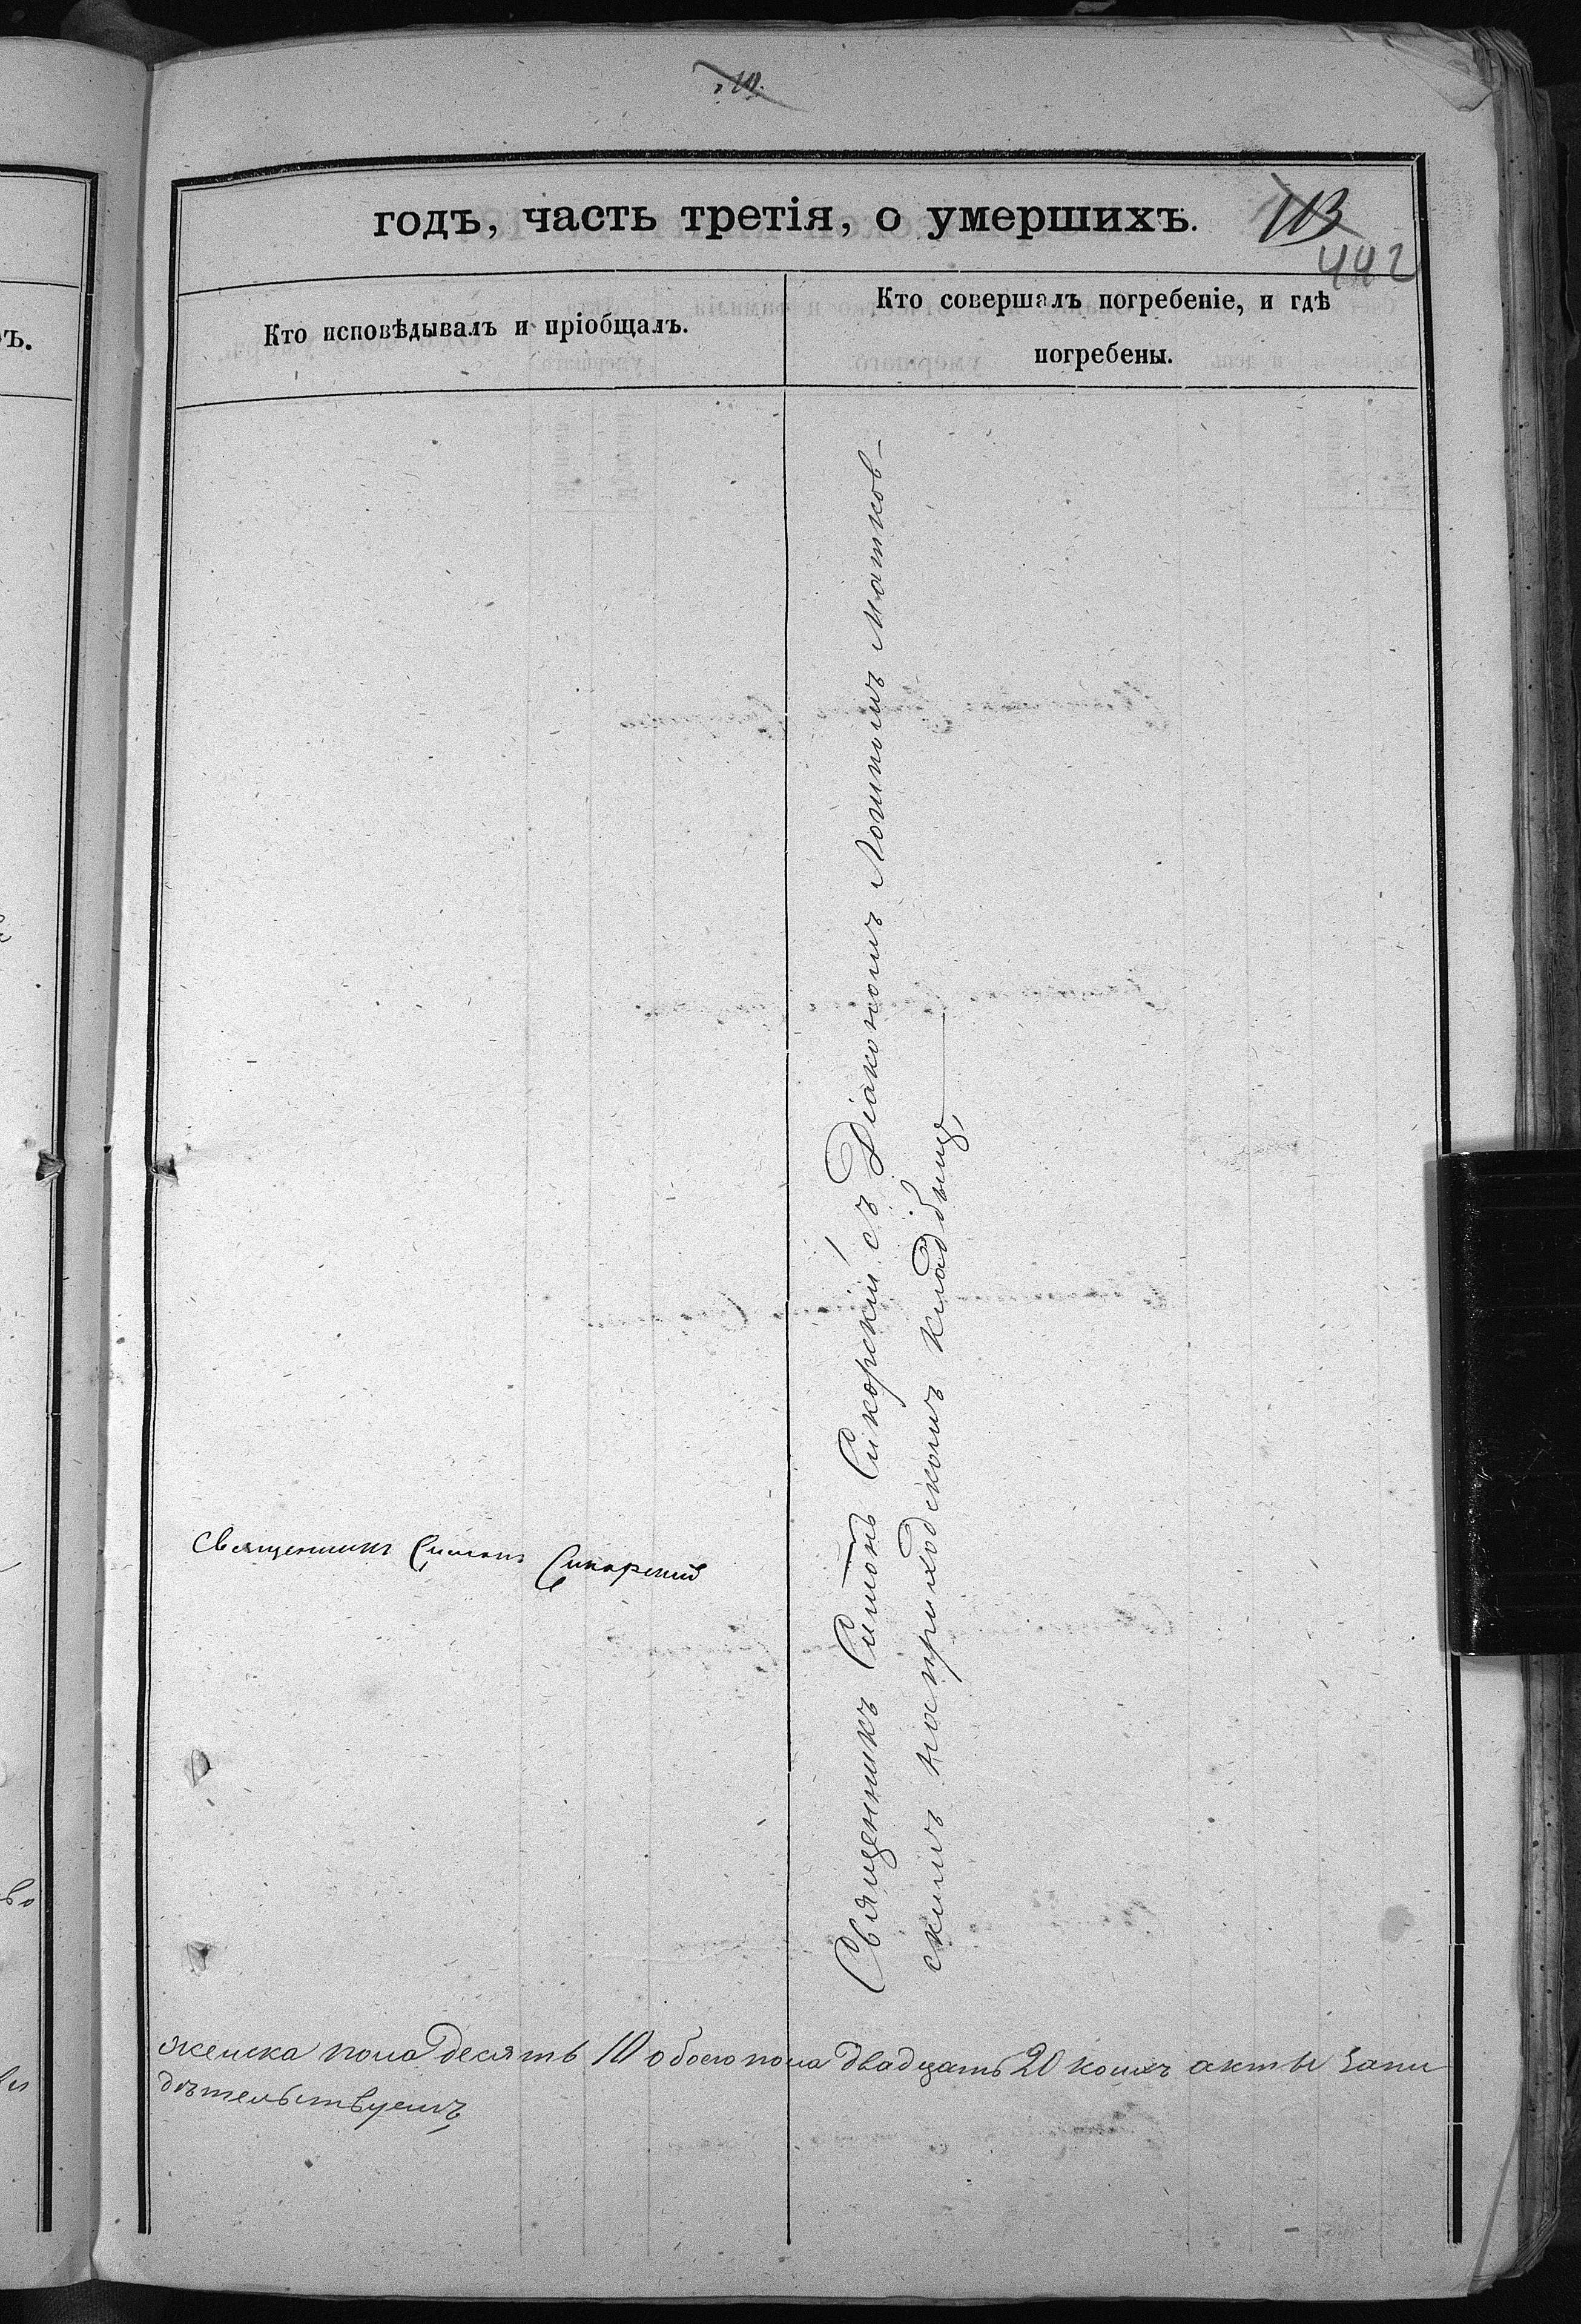 10.
годъ, часть третія, о умершихъ.
113
442
Кто исповѣдывалъ и пріобщалъ.
Кто совершалъ погребеніе, и гдѣ
погребены.
ъ.
Священникъ Симонъ Сикорскій
Священникъ Симонъ Сикорскій съ Діакономъ Логиномъ Матков-
скимъ на приходскомъ кладбищѣ
женска пола десять 10 обоего пола двадцать 20 коихъ акты запи
дѣтельствуемъ